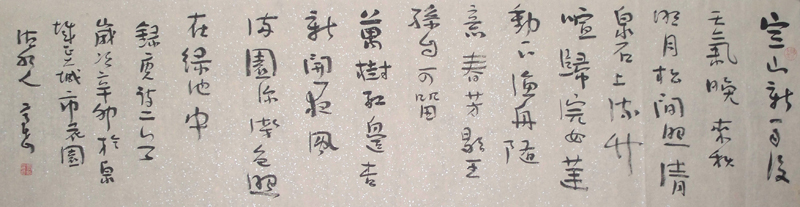 空山新雨後
天氣晚來秋
明月松間照清
泉石上流竹
喧歸浣女蓮
動下漁舟隨
意春芳歇王
孫自可留
萬樹江邊杏
新開一夜風
滿園深淺色照
在綠池中
錄唐詩二首
歲次辛卯於泉
城市花園